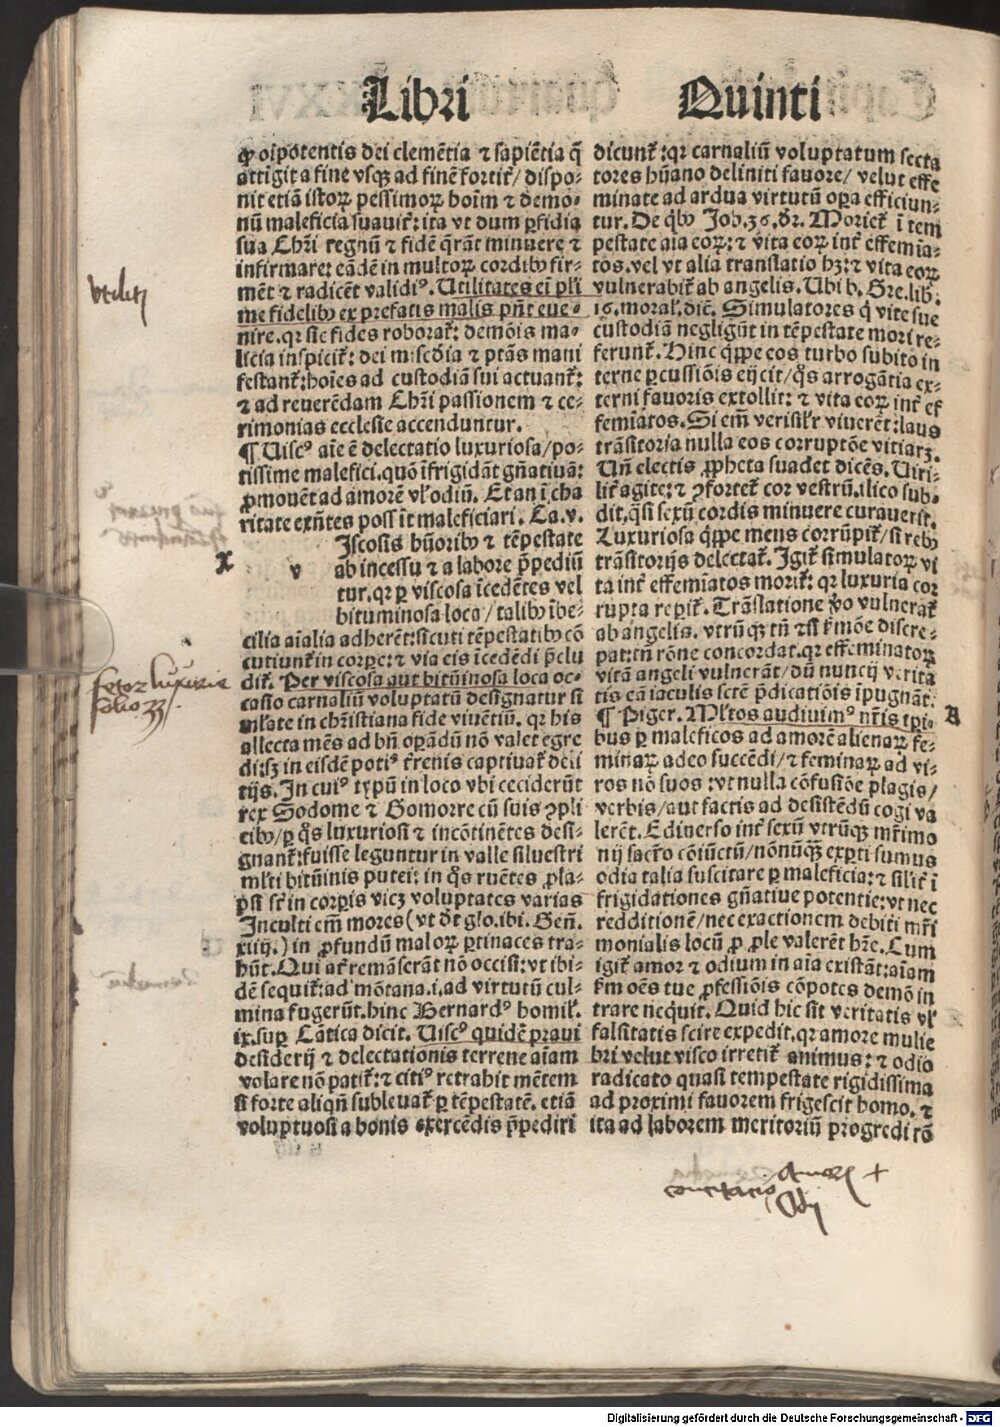 Libri Quinti
ꝙ oīpotentis dei clemētia ⁊ sapiētia q̄
attigit a fine vsqꝫ ad finē fortit᷑/ dispo⸗
nit etiā istoꝝ pessimoꝝ hoīm ⁊ demo⸗
nū maleficia suauit᷑: ita vt dum ꝑfidia
sua Chr̄i regnū ⁊ fidē q̄rāt minuere ⁊
infirmare: eādē in multoꝝ cordibꝰ fir⸗
mēt ⁊ radicēt validiꝰ. Utilitates em̄ pl'i
me fidelibꝰ ex prefatis malis pn̄t eue⸗
nire. qꝛ sic fides roborat᷑: demōis ma⸗
licia inspicit᷑: dei mīsc̄dia ⁊ ptās mani
festant᷑: hoīes ad custodiā sui actuant᷑:
⁊ ad reuerēdam Chr̄i passionem ⁊ ce⸗
rimonias ecclesie accenduntur.
¶ Viscꝰ aīe ē delectatio luxuriosa/ po⸗
tissime malefici. quō īfrigidāt gn̄atiuā:
ꝓmouēt ad amorē vl' odiū. Et an ī cha
ritate exn̄tes poss īt maleficiari. Ca. v.
v Iscosis hūoribꝰ ⁊ tēpestate
ab incessu ⁊ a labore p̄pediū
tur. qꝛ ꝑ viscosa īcedētes vel
bituminosa loca/ talibꝰ ībe⸗
cilia aīalia adherēt: sicuti tēpestatibꝰ cō
cutiunt᷑ in corꝑe: ⁊ via eis īcedēdi p̄clu
dit᷑. Per viscosa aut bitūinosa loca oc⸗
casio carnaliū voluptatū designatur si
mīlate in chr̄istiana fide viuētiū. qꝛ his
allecta mēs ad bn̄ oꝑandū nō valet egre
di: sꝫ in eisdē potiꝰ t᷑renis captiuat᷑ deli
tijs. In cuiꝰ typū in loco vbi ceciderūt
rex Sodome ⁊ Gomorre cū suis ꝯpli
cibꝰ/ ꝑ q̄s luxuriosi ⁊ incōtinētes desi⸗
gnant᷑: fuisse leguntur in valle siluestri
ml'ti bitūinis putei: in q̄s ruētes ꝓla⸗
psi sūt in corꝑis vicꝫ voluptates varias
Inculti em̄ mores (vt dt̄ glo. ibi. Gen̄.
xiiij.) in ꝓfundū maloꝝ ꝑtinaces tra⸗
hūt. Qui at᷑ remāserāt nō occisi: vt ibi⸗
dē sequit᷑: ad mōtana. i. ad virtutū cul⸗
mina fugerūt. hinc Bernardꝰ homil'.
ix. suꝑ Cātica dicit. Viscꝰ quidē praui
desiderij ⁊ delectationis terrene aīam
volare nō patit᷑: ⁊ citiꝰ retrahit mētem
si forte aliqn̄ subleuat᷑ ꝑ tēpestatē. etiā
voluptuosi a bonis exercēdis p̄pediri
dicunt᷑: qꝛ carnaliū voluptatum secta
tores hūano deliniti fauore/ velut effe
minate ad ardua virtutū oꝑa efficiun⸗
tur. De qbꝰ Job. 36. dr̄. Moriet᷑ ī tem
pestate aīa eoꝝ: ⁊ vita eoꝝ int᷑ effemīa⸗
tos. vel vt alia translatio hꝫ: ⁊ vita eoꝝ
vulnerabit᷑ ab angelis. Ubi b. Gre. lib.
16. moral'. dic̄. Simulatores q̄ vite sue
custodiā negligūt in tēpestate mori re⸗
ferunt᷑. Hinc q̄ppe eos turbo subito in
terne ꝑcussiōis eijcit/ q̄s arrogātia ex⸗
terni fauoris extollit: ⁊ vita eoꝝ int᷑ ef
femīatos. Si em̄ verisil'r viuerēt: laus
trāsitoria nulla eos corruptōe vitiarꝫ.
Un̄ electis ꝓpheta suadet dicēs. Viri⸗
lit᷑ agite: ⁊ ꝯfortet᷑ cor vestrū. ilico sub⸗
dit, q̄si sexū cordis minuere curauerit.
Luxuriosa q̄ppe mens corrūpit᷑/ si rebꝰ
trāsitorijs delectat᷑. Igit᷑ simulatoꝝ vi
ta int᷑ effemīatos morit᷑: qꝛ luxuria cor
rupta reꝑit᷑. Trāslatione ꝟo vulnerat᷑
ab angelis. vtrūqꝫ tn̄ ⁊si f᷑mōe discre⸗
pat: tn̄ rōne concordat. qꝛ effeminatoꝝ
vitā angeli vulnerāt/ dū nuncij verita
tis eā iaculis scr̄e p̄dicatiōis īpugnāt.
¶ Piger. Ml'tos audiuimꝰ nr̄is tꝑi⸗
bus ꝑ maleficos ad amorē alienaꝝ fe⸗
minaꝝ adeo succēdi/ ⁊ feminaꝝ ad vi⸗
ros nō suos: vt nulla cōfusiōe plagis/
verbis/ aut factis ad desistēdū cogi va
lerēt. Ediuerso int᷑ sexū vtrūqꝫ mr̄imo
nij sacr̄o cōiūctū/ nōnūq̄ꝫ exꝑti sumus
odia talia suscitare ꝑ maleficia: ⁊ silit᷑ ī
frigidationes gn̄atiue potentie: vt nec
redditionē/ nec exactionem debiti mr̄i
monialis locū ꝓ ꝓle valerēt hr̄e. Cum
igit᷑ amor ⁊ odium in aīa existāt: aīam
f᷑m oēs tue ꝓfessiōis cōpotes demō in
trare neq̄uit. Quid hic sit veritatis vl'
falsitatis scire expedit. qꝛ amore mulie
bri velut visco irretit᷑ animus: ⁊ odio
radicato quasi tempestate rigidissima
ad proximi fauorem frigescit homo. ⁊
ita ad laborem meritoriū progredi rō
x
A
fetor luxurie
folio 33
concitatio Amoris +
Odij
Digitalisierung gefördert durch die Deutsche Forschungsgemeinschaft - DFG